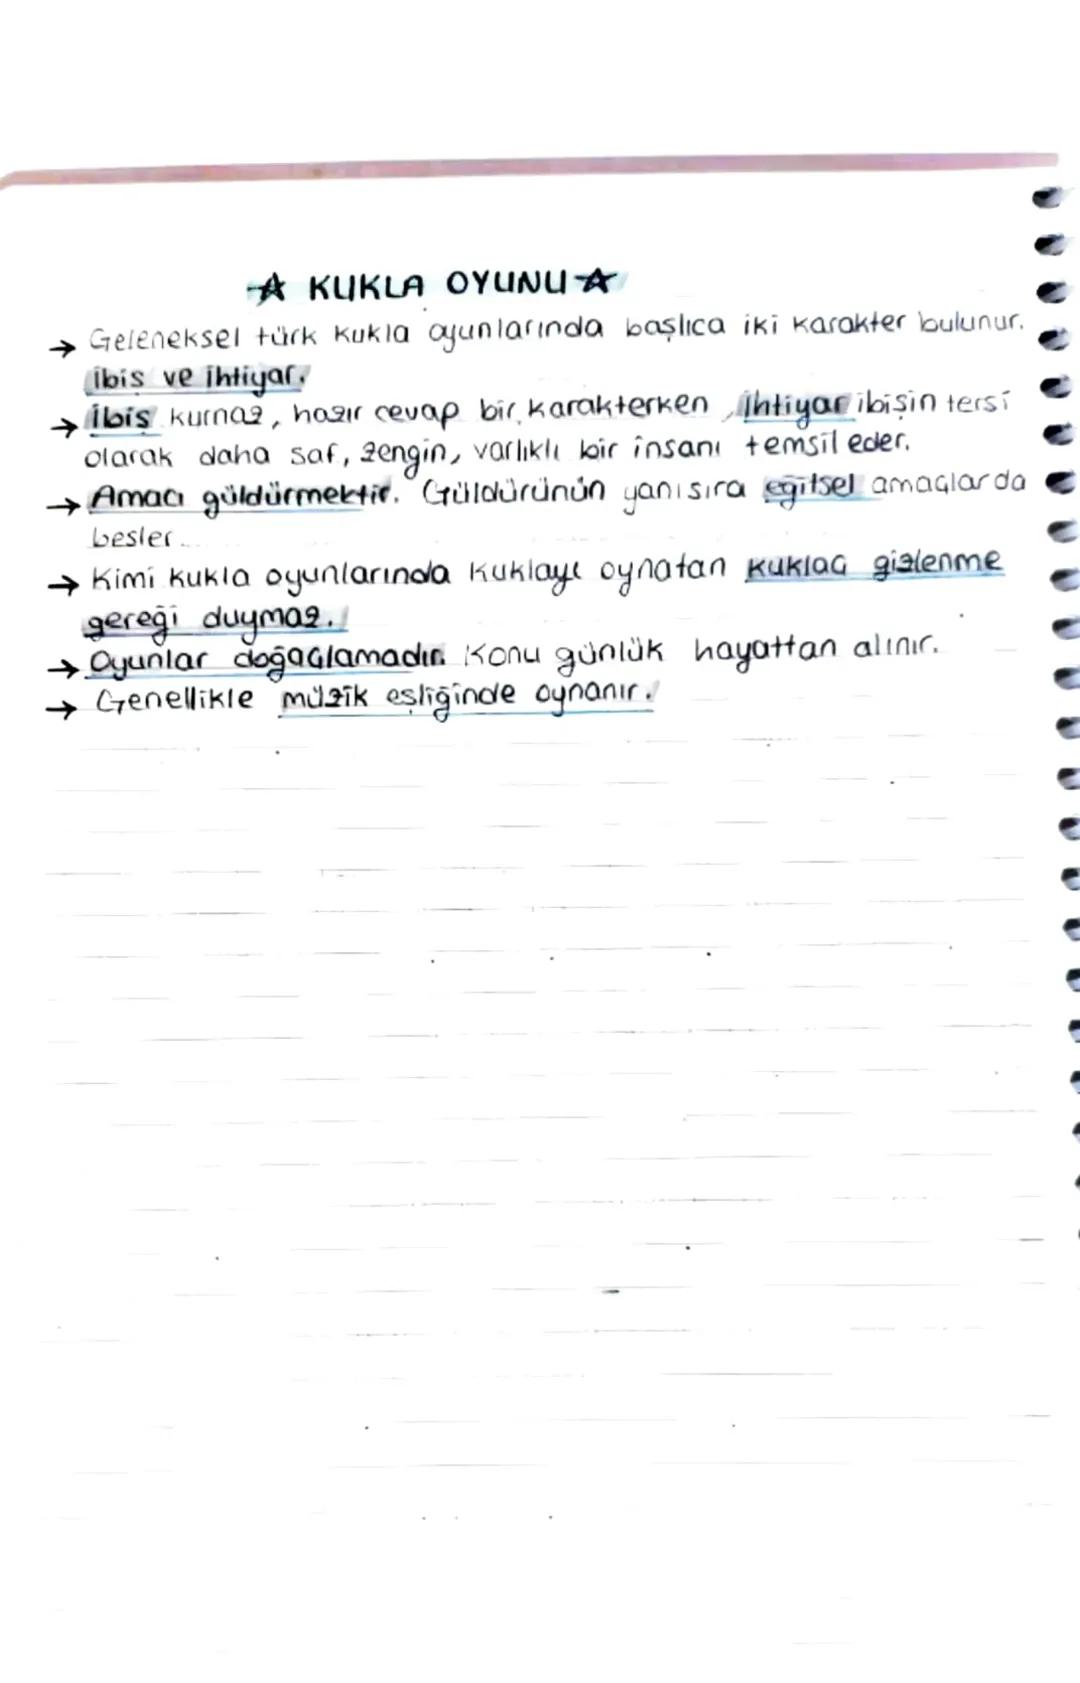 ☆ KUKLA OYUNU ☆
→ Geleneksel türk kukla oyunlarında başlıca iki karakter bulunur.
ibiş ve ihtiyar.
→ İbiş kurnaz, hazır cevap bir karakterken, ihtiyar ibişin tersi
olarak daha saf, zengin, varlıklı bir insanı temsil eder.
→ Amacı güldürmektir. Güldürünün yanısıra eğitsel amaçlar da
besler.
→ Kimi kukla oyunlarında kuklayı oynatan kuklacı gizlenme
gereği duymaz.
→ Oyunlar doğaçlamadır. Konu günlük hayattan alınır.
→ Genellikle müzik eşliğinde oynanır.